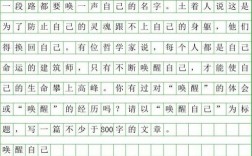 一段路都要唤一声自己的名字。土着人说这是
为了防止自己的灵魂跟不上自己的身躯，他们
得换回自己。有位哲学家说，每个人都是自己
命运的建筑师，只有不断唤醒自己，才能使自
己的生命攀上高峰。你有过对“唤醒”的体会
或“唤醒”的经历吗？请以“唤醒自己”为标
题，写一篇不少于800字的文章。
唤醒自己